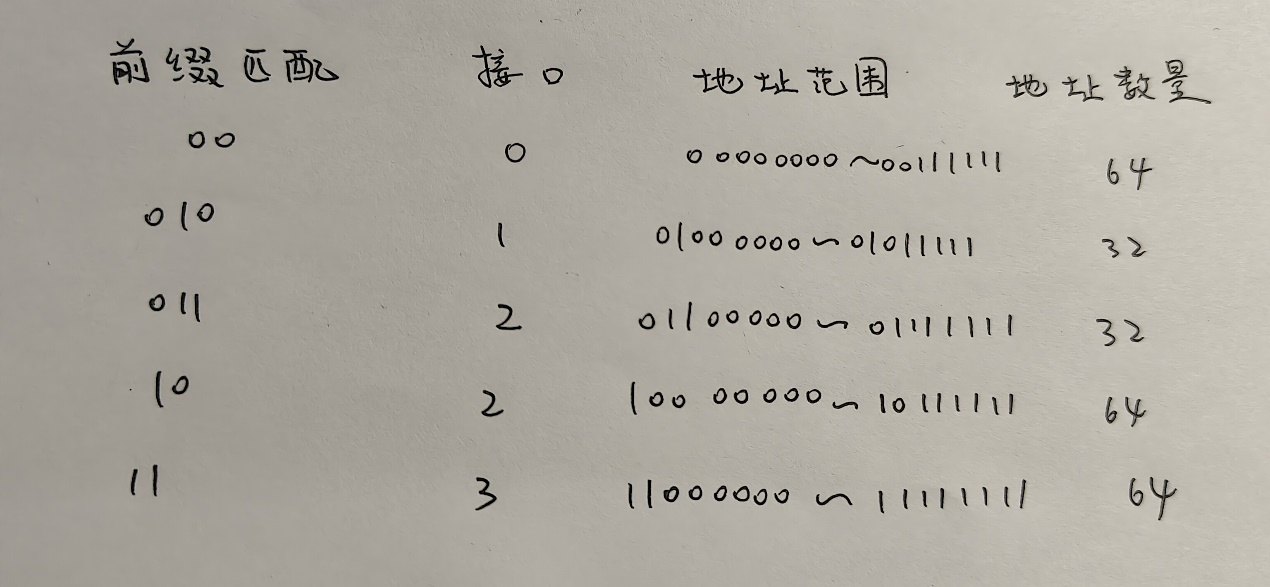 前缀匹配 接口 地址范围 地址数量
00 0 00000000~00111111 64
010 1 01000000~01011111 32
011 2 01100000~01111111 32
10 2 10000000~10111111 64
11 3 11000000~11111111 64